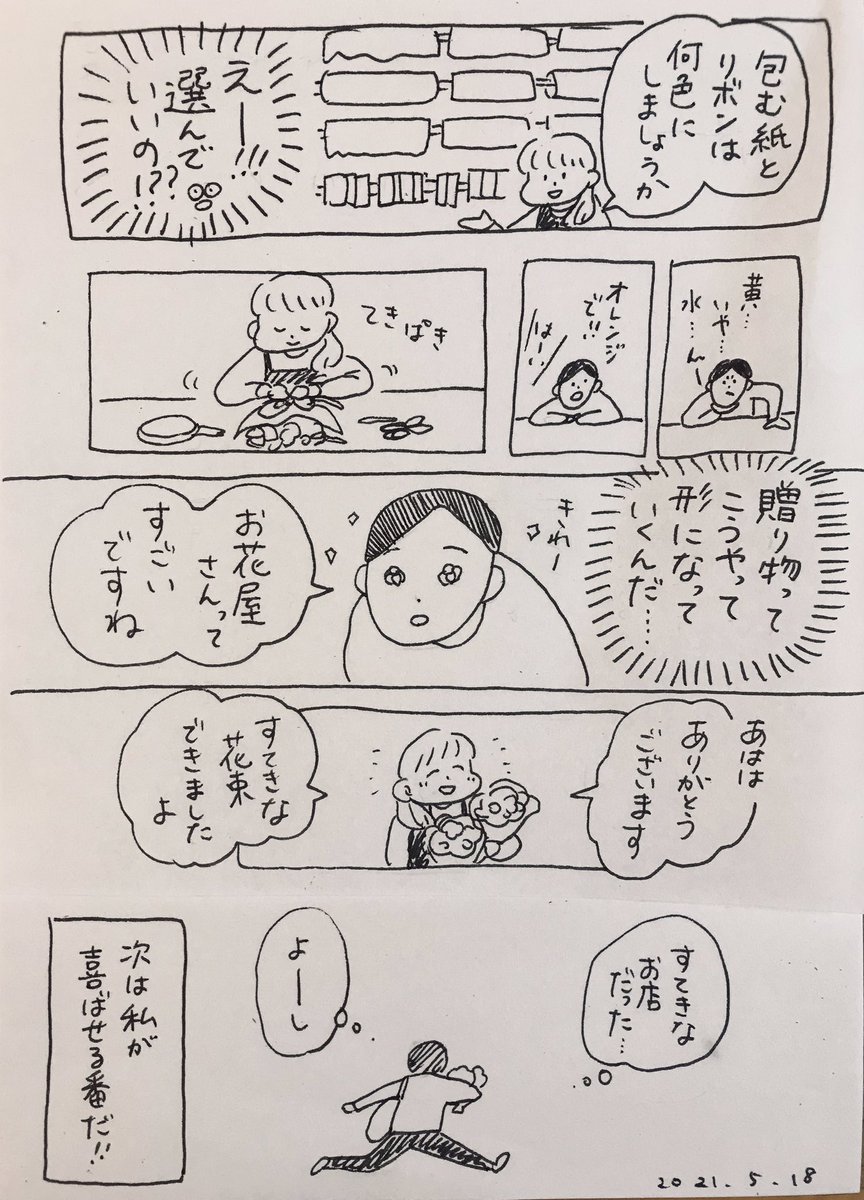 包む紙と
リボンは
何色に
しましょうか
えー!!!
選んで
いいの!??
黄…
いや…
水…
んー
オレンジ
で!!
はーい
てきぱき
贈り物って
こうやって
形になって
いくんだ……
きれー
お花屋
さんって
すごい
ですね
あはは
ありがとう
ございます
すてきな
花束
できました
よ
すてきな
お店
だった…
よーし
次は私が
喜ばせる番だ!!
2021.5.18